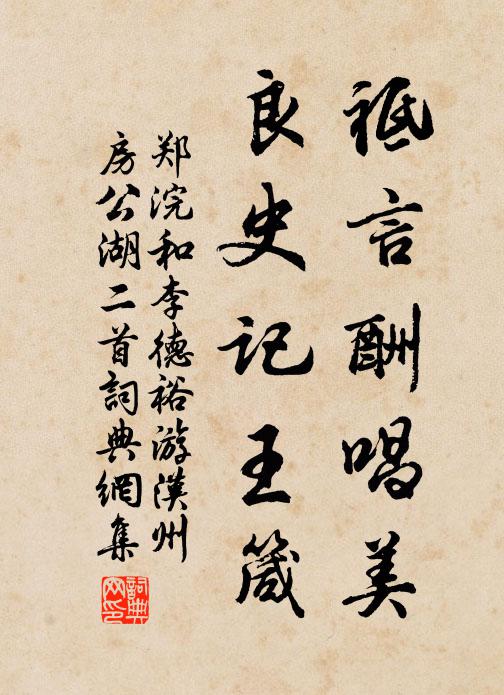 祗言酬唱美
良史记王箴
郑浣和李德裕游汉州
房公湖二首詞典網集
詞典網印